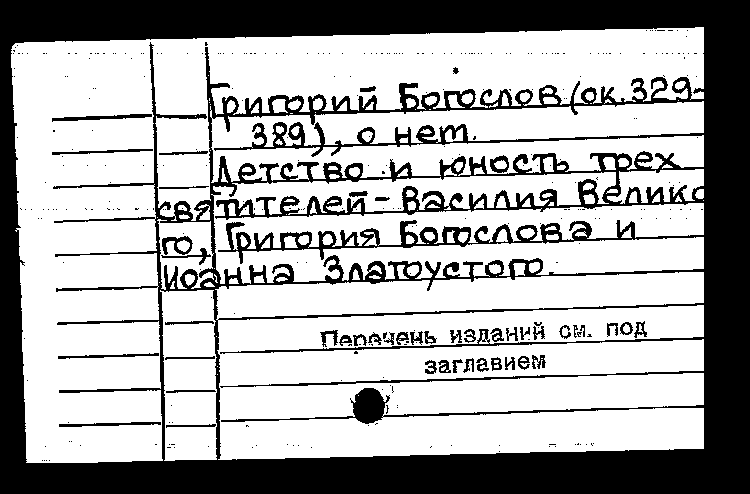 Григорий Богослов (ок. 329-
389), о нем.
Детство и юность трех
святителей - Василия Велико
го, Григория Богослова и
Иоанна Златоустого.
Перечень изданий см. под
заглавием